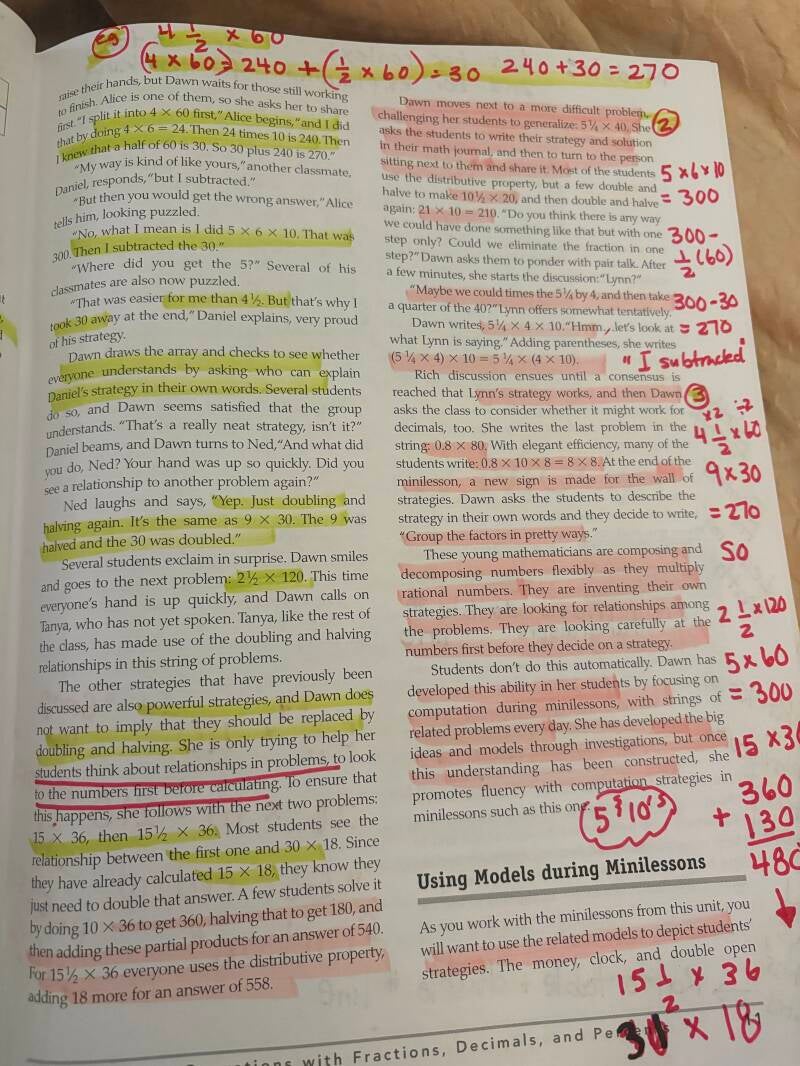 Eg
4 1/2 x 60
(4 x 60) = 240 + (1/2 x 60) = 30 240 + 30 = 270
raise their hands, but Dawn waits for those still working
to finish. Alice is one of them, so she asks her to share
first. "I split it into 4 × 60 first," Alice begins, "and I did
that by doing 4 × 6 = 24. Then 24 times 10 is 240. Then
I knew that a half of 60 is 30. So 30 plus 240 is 270."
"My way is kind of like yours," another classmate,
Daniel, responds, "but I subtracted."
"But then you would get the wrong answer," Alice
tells him, looking puzzled.
"No, what I mean is I did 5 × 6 × 10. That was
300. Then I subtracted the 30."
"Where did you get the 5?" Several of his
classmates are also now puzzled.
"That was easier for me than 4½. But that's why I
took 30 away at the end," Daniel explains, very proud
of his strategy.
Dawn draws the array and checks to see whether
everyone understands by asking who can explain
Daniel's strategy in their own words. Several students
do so, and Dawn seems satisfied that the group
understands. "That's a really neat strategy, isn't it?"
Daniel beams, and Dawn turns to Ned, "And what did
you do, Ned? Your hand was up so quickly. Did you
see a relationship to another problem again?"
Ned laughs and says, "Yep. Just doubling and
halving again. It's the same as 9 × 30. The 9 was
halved and the 30 was doubled."
Several students exclaim in surprise. Dawn smiles
and goes to the next problem: 2½ × 120. This time
everyone's hand is up quickly, and Dawn calls on
Tanya, who has not yet spoken. Tanya, like the rest of
the class, has made use of the doubling and halving
relationships in this string of problems.
The other strategies that have previously been
discussed are also powerful strategies, and Dawn does
not want to imply that they should be replaced by
doubling and halving. She is only trying to help her
students think about relationships in problems, to look
to the numbers first before calculating. To ensure that
this happens, she follows with the next two problems:
15 × 36, then 15½ × 36. Most students see the
relationship between the first one and 30 × 18. Since
they have already calculated 15 × 18, they know they
just need to double that answer. A few students solve it
by doing 10 × 36 to get 360, halving that to get 180, and
then adding these partial products for an answer of 540.
For 15½ × 36 everyone uses the distributive property,
adding 18 more for an answer of 558.
Dawn moves next to a more difficult problem,
challenging her students to generalize: 5¼ × 40. She
asks the students to write their strategy and solution
in their math journal, and then to turn to the person
sitting next to them and share it. Most of the students
use the distributive property, but a few double and
halve to make 10½ × 20, and then double and halve
again: 21 × 10 = 210. "Do you think there is any way
we could have done something like that but with one
step only? Could we eliminate the fraction in one
step?" Dawn asks them to ponder with pair talk. After
a few minutes, she starts the discussion: "Lynn?"
"Maybe we could times the 5¼ by 4, and then take
a quarter of the 40?" Lynn offers somewhat tentatively.
Dawn writes, 5¼ × 4 × 10. "Hmm, let's look at
what Lynn is saying." Adding parentheses, she writes
(5 ¼ × 4) × 10 = 5 ¼ × (4 × 10).
Rich discussion ensues until a consensus is
reached that Lynn's strategy works, and then Dawn
asks the class to consider whether it might work for
decimals, too. She writes the last problem in the
string: 0.8 × 80. With elegant efficiency, many of the
students write: 0.8 × 10 × 8 = 8 × 8. At the end of the
minilesson, a new sign is made for the wall of
strategies. Dawn asks the students to describe the
strategy in their own words and they decide to write,
"Group the factors in pretty ways."
These young mathematicians are composing and
decomposing numbers flexibly as they multiply
rational numbers. They are inventing their own
strategies. They are looking for relationships among
the problems. They are looking carefully at the
numbers first before they decide on a strategy.
Students don't do this automatically. Dawn has
developed this ability in her students by focusing on
computation during minilessons, with strings of
related problems every day. She has developed the big
ideas and models through investigations, but once
this understanding has been constructed, she
promotes fluency with computation strategies in
minilessons such as this one.
Using Models during Minilessons
As you work with the minilessons from this unit, you
will want to use the related models to depict students'
strategies. The money, clock, and double open
2
5 x 6 x 10
= 300
300 -
1/2 (60)
300-30
= 270
"I subtracted
3
x2 ÷2
4 1/2 x 60
9 x 30
= 270
So
2 1/2 x 120
5 x 60
= 300
15 x 36
360
+ 130
480
5's 10's
15 1/2 x 36
31 x 18
with Fractions, Decimals, and